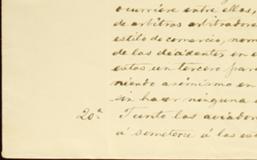 ocurriere entre ellos,
de arbitros arbitradores
estilo de comercio, nom
de los decidentes, en c
estos un tercero para
niendo asimismo en
sin hacer ninguna
20ª Junto los aviador
á someterse á las est